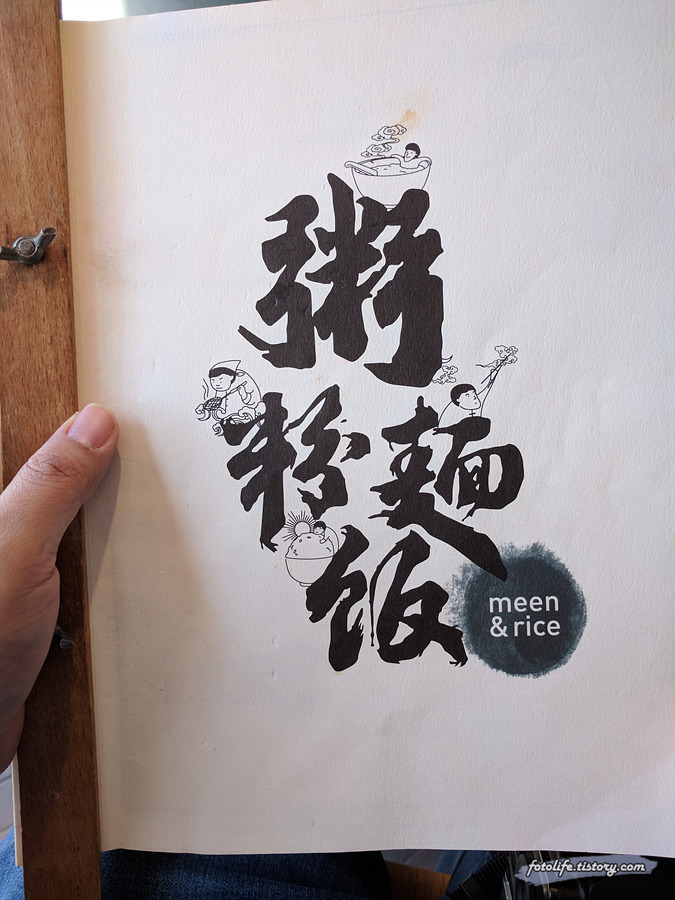 粥
粉麵
饭
meen
& rice
fotolife.tistory.com